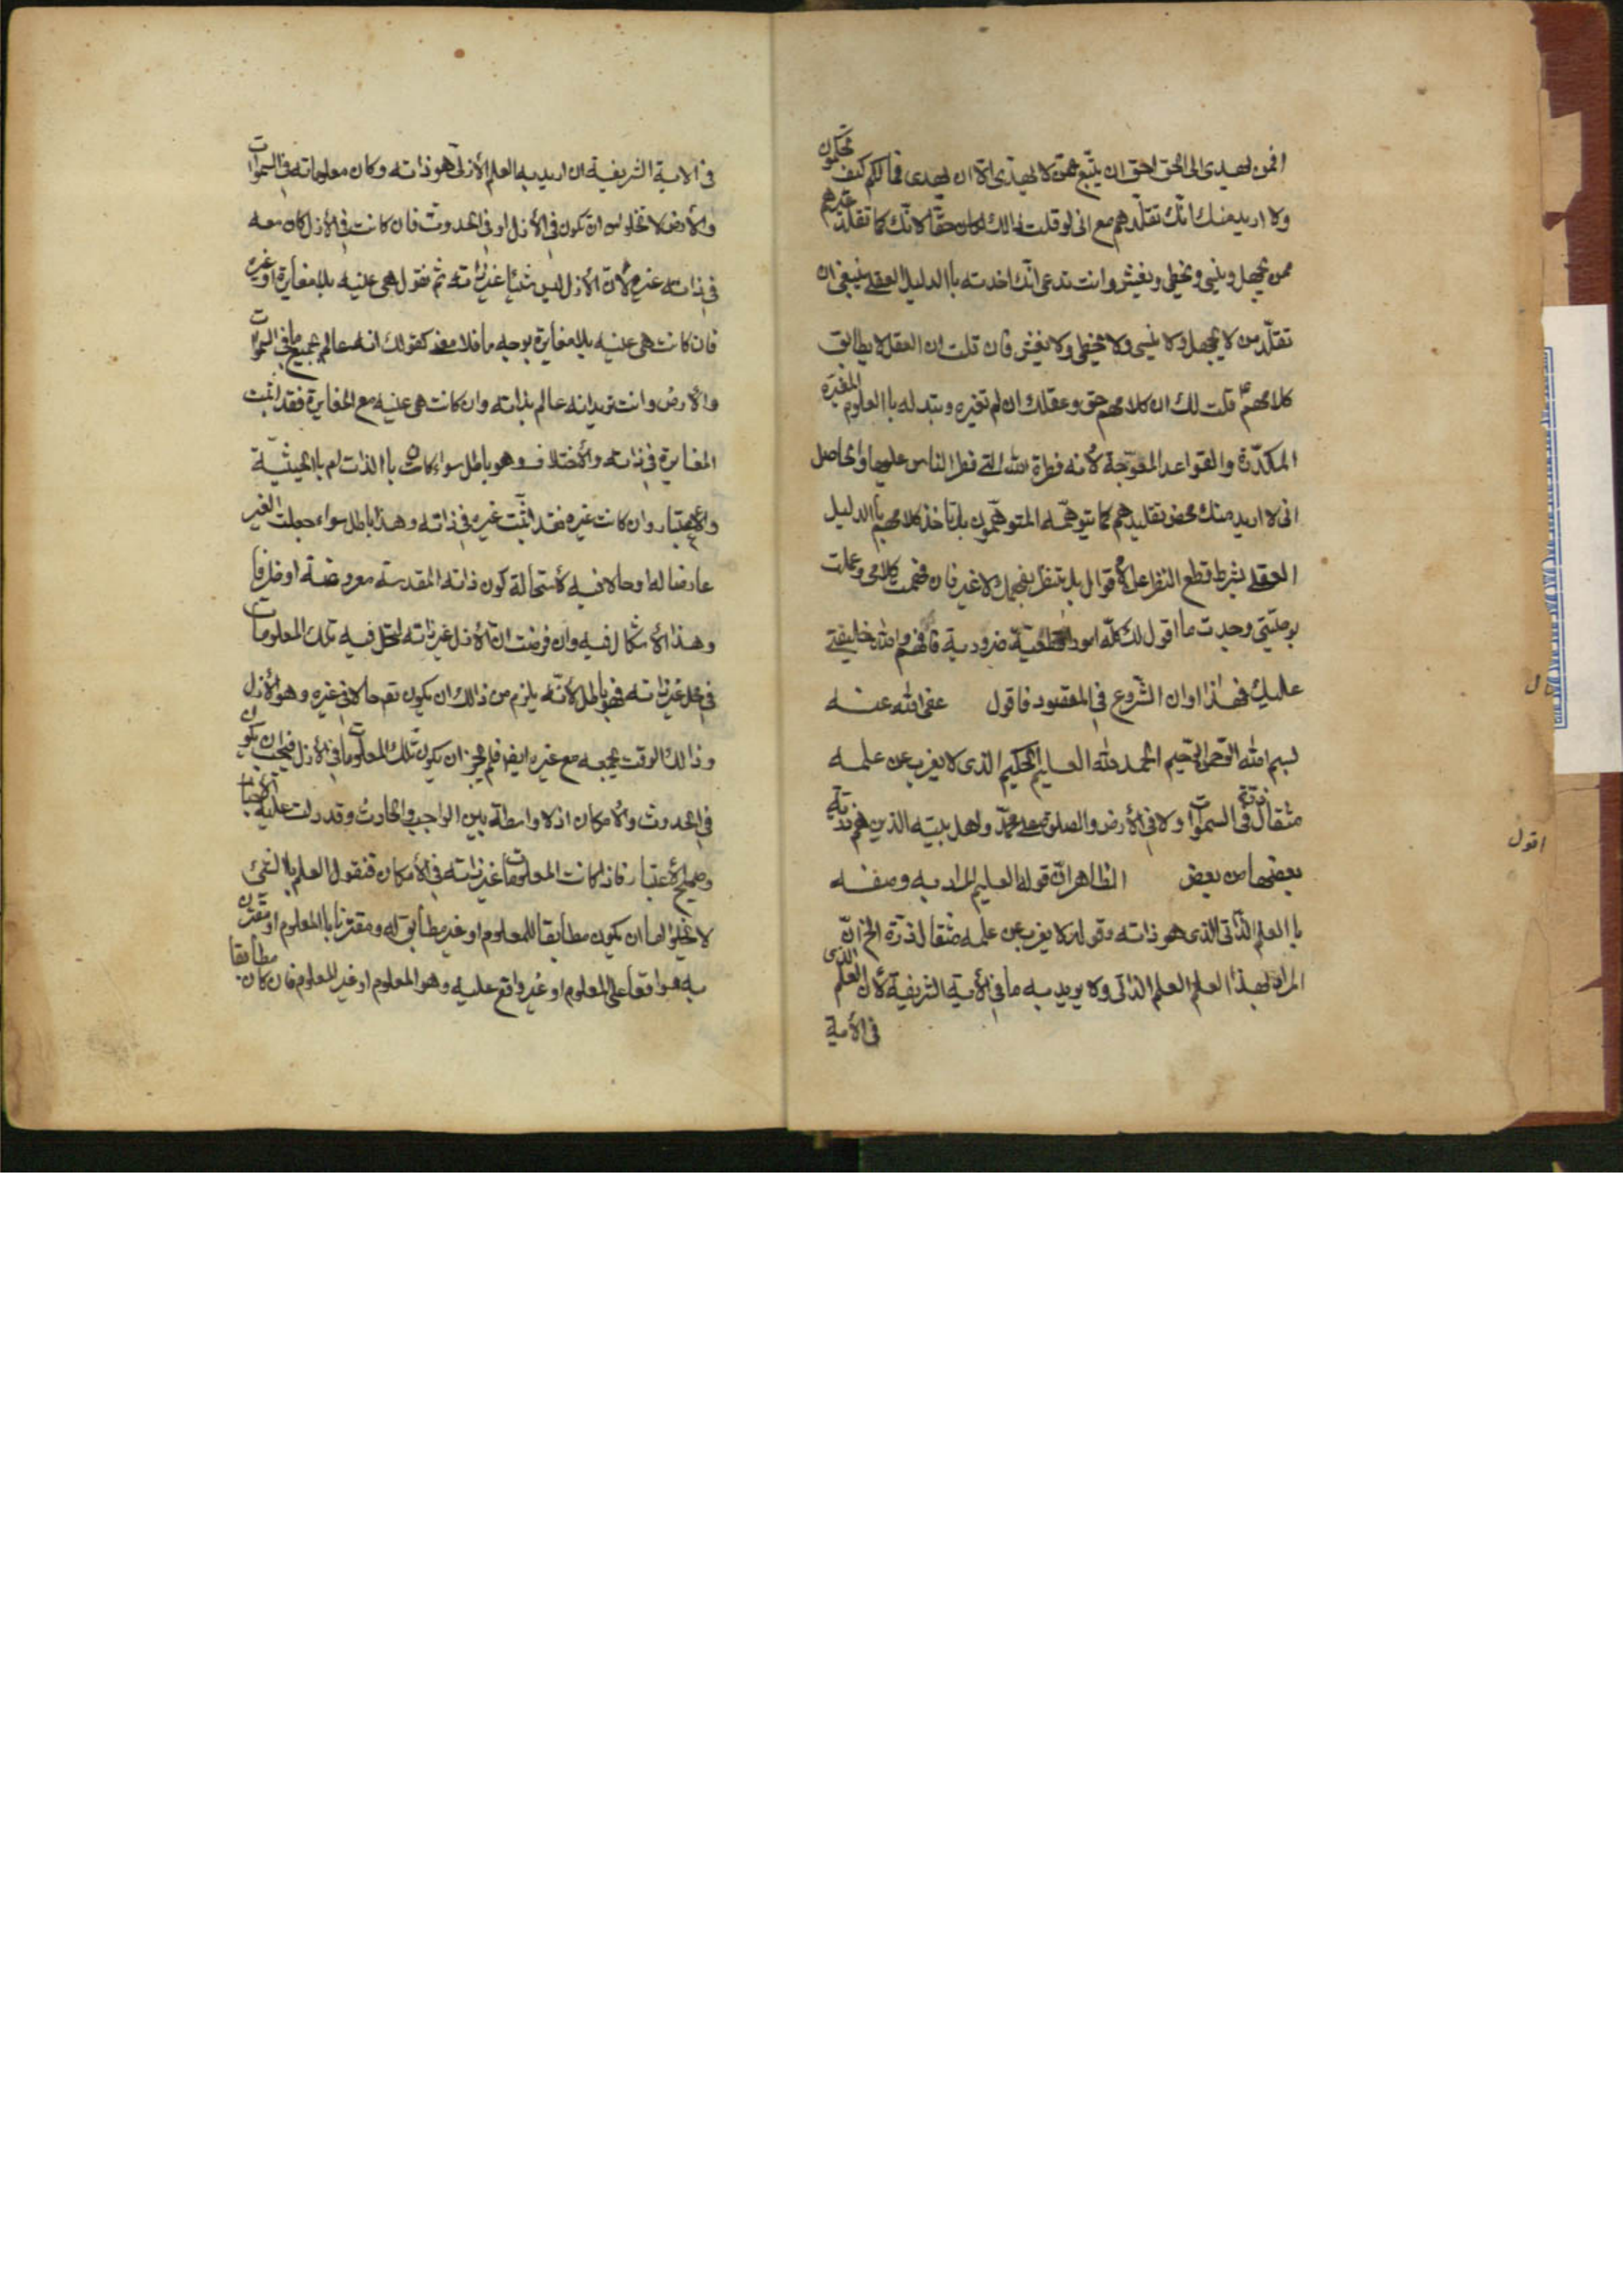 افمن يهدى الى الحق احق ان يتبع ممّن لا يهدّى الّا ان يهدى فمالكم كيف تحكمون
ولا اريد منك انّك تقلّدهم مع انى لو قلت لك ذالك لكان حقّا لانّك كما تقلّد غيرهم
ممن يجهل وينسى ويخطى ويغش وانت تدعى انّك اخذته باالدليل العقلے ينبغى ان
تقلّد من لا يجهل ولا ينسى ولا يخطى ولا يغش فان قلت ان العقل لا يطابق
كلامهم ع قلت لك ان كلامهم حق وعقلك ان لم تغيره وتبدله باالعلوم المغيّره
المكدّرة والقواعد المعوّجة لأنه فطرة الله التے فطر الناس عليها والحاصل
انى لا اريد منك محض تقليدهم كما يتوهّمه المتوهّمون بل تأخذ كلامهم باالدليل
العقلے بشرط قطع النظر عن الأقوال بل تنظر بفهمك لا غير فان فهمت كلامى وعملت
بوصيّتى وجدت ما اقول لك كلّه امورا قطعيّة ضرورية فافهم والله خليفتے
عليك فهذا اوان الشروع فى المقصود فاقول عفى الله عنه
قال
بسم الله الرّحمن الرّحيم الحمد لله العليم الحكيم الذى لا يعزب عن علمه
مثقال ذرّة فى السموات ولا فى الأرض والصلوة على محمّد واهل بيته الذين هم ذرّية
بعضها من بعض الظاهر انّ قوله العليم المراد به وصفه
اقول
باالعلم الذّاتى الذى هو ذاته وقوله لا يعزب عن علمه مثقال ذرّة الخ انّ
المراد بهذا العلم العلم الذاتى ولا يريد به ما فى الأية الشريفة لأن العلم الذى
فى الأية
فى الاية الشريفة ان اريد به العلم الأزلى هو ذاته وكان معلوماته فى السموات
والأرض لا تخلو من ان تكون فى الأزل او فى الحدوث فان كانت فى الأزل كان معه
فى ذاته غيره لأن الأزل ليس شيئا غير ذاته ثم نقول هى عينه بلا مغايرة او غيره
فان كانت هى عينه بلا مغايرة بوجه ما فلا معنے كقولك انه عالم بجميع ما فى السموات
والأرض وانت تريد انه عالم بذاته وان كانت هى عينه مع المغايرة فقد اثبت
المغايرة فى ذاته والأختلاف وهو باطل سواء كانت باالذات ام باالحيثيّة
والأعتبار وان كانت غيره فقد اثبّت غيره فى ذاته وهذا باطل سواء جعلت الغير
عارضا له او حالا فيه لأستحالة كون ذاته المقدسة معروضة او ظرفا
وهذا لأ شكال فيه وان فرضت ان الأزل غير ذاته لتحل فيه تلك المعلومات
فى محل غير ذاته فهو باطل لأنّه يلزم من ذالك ان يكون تع حالا فى غيره وهو الأزل
وذالك الوقت يجمعه مع غيره ايضا فلم يجز ان يكون تلك المعلومات فى الأزل فيجب ان يكون
فى الحدوث والأمكان اذ لا واسطة بين الواجب والحادث وقد دلت عليه الأخبار
وصحيح الأعتبار فاذا كانت المعلومات غير ذاته فى الأمكان فنقول العلم باالشئ
لا يخلوا اما ان يكون مطابقا للمعلوم او غير مطابق له ومقترنا باالمعلوم او غير مقترن
به وواقعا على المعلوم او غير واقع عليه وهو المعلوم او غير المعلوم فان كان مطابقا